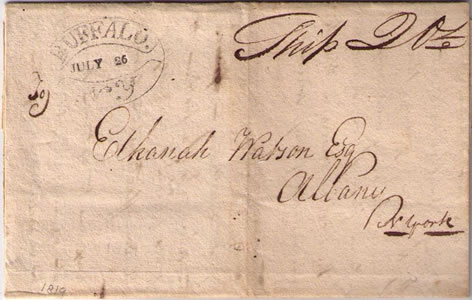 BUFFALO.
JULY 26
Ship 20½
Elkanah Watson Esq
Albany
N York
1819